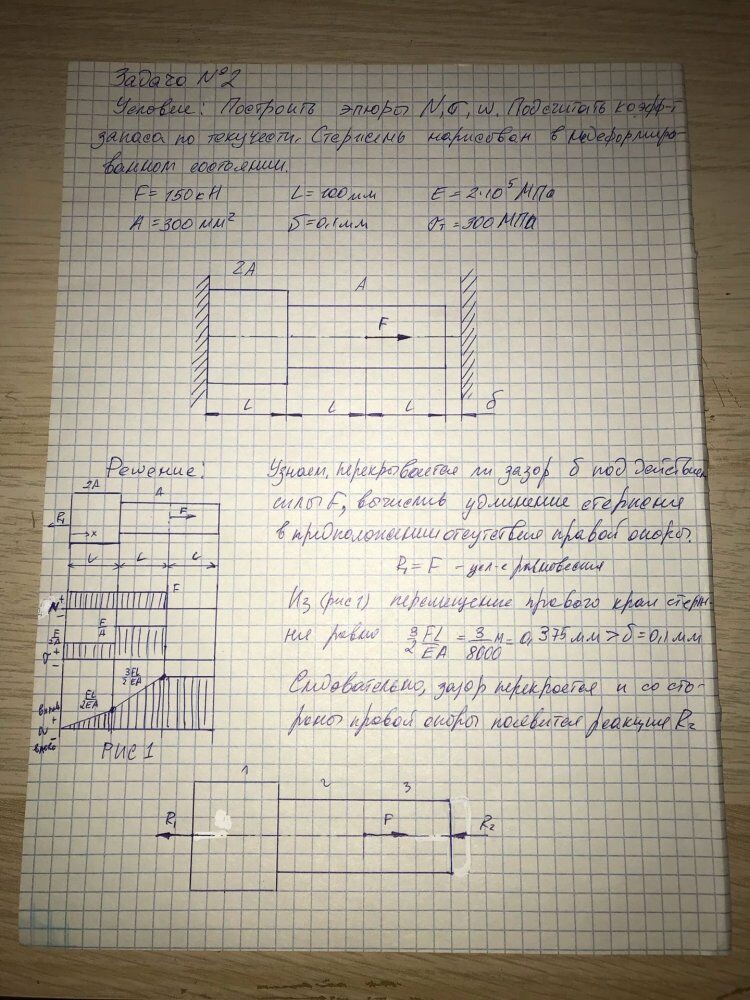 Задача №2
Условие: Построить эпюры N, σ, w. Подсчитать коэфф-т
запаса по текучести. Стержень нарисован в недеформиро-
ванном состоянии.
F = 150 кН L = 100 мм E = 2·10⁵ МПа
A = 300 мм² δ = 0,1 мм σт = 300 МПа
2A A
F
L L L δ
Решение:
Узнаем, перекрывается ли зазор δ под действием
силы F, вычислив удлинение стержня
в предположении отсутствия правой опоры.
R₁ = F - усл-е равновесия
Из (рис 1) перемещение правого края стерж-
ня равно 3/2 FL/EA = 3/8000 м = 0,375 мм > δ = 0,1 мм
Следовательно, зазор перекроется и со сто-
роны правой опоры появится реакция R₂
2A A
R₁ F
x
L L L
N + - F
σ + - F/2A F/A
FL/2EA 3FL/2EA
вправо + влево
РИС 1
1 2 3
R₁ F R₂